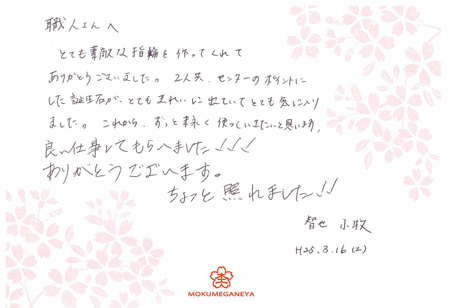 職人さんへ
とても素敵な指輪を作ってくれて
ありがとうございました。2人共、センターのポイントに
した誕生石が、とてもきれいに出ていてとても気に入り
ました。これから、ずっと末永く使っていきたいと思います。
良い仕事してもらいました!!!
ありがとうございます。
ちょっと照れました!!
智也 小牧
H25.3.16(土)
MOKUMEGANEYA